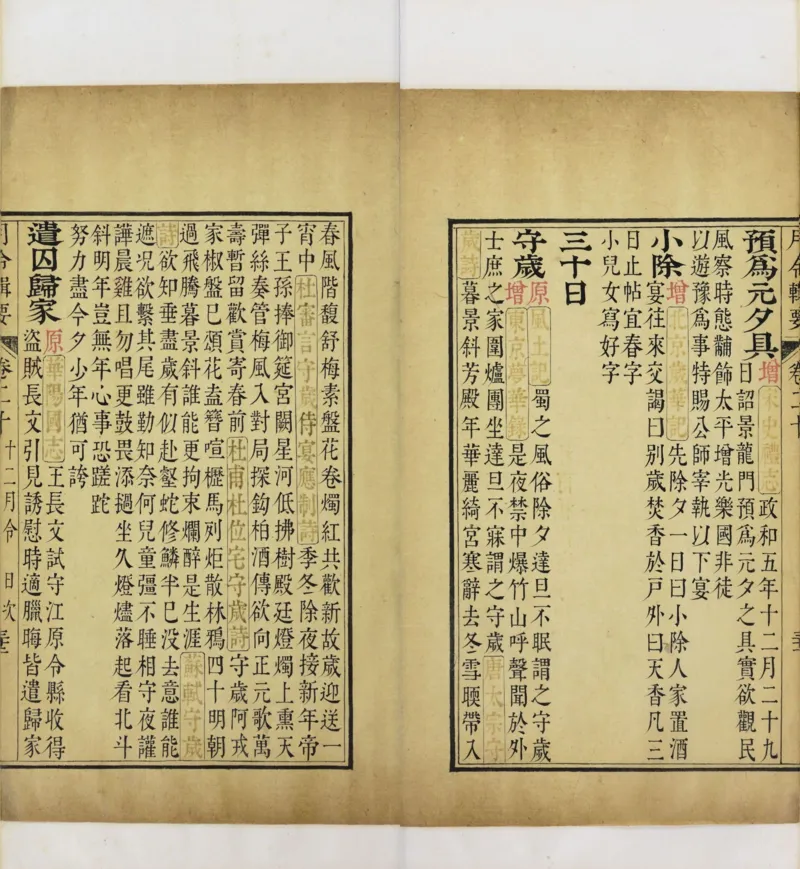 月令輯要 卷二十
預爲元夕具 增 政和五年十二月二十九
日詔景龍門預爲元夕之具實欲觀民
風察時態黼飾太平增光樂國非徒
以遊豫爲事特賜公師宰執以下宴
小除 增 北京歲華記 先除夕一日曰小除人家置酒
宴往來交謁曰别歲焚香於戶外曰天香凡三
日止帖宜春字
小兒女寫好字
三十日
守歲 原 風土記 蜀之風俗除夕達旦不眠謂之守歲
增 東京夢華錄 是夜禁中爆竹山呼聲聞於外
士庶之家圍爐團坐達旦不寐謂之守歲 唐太宗守
歲詩 暮景斜芳殿年華麗綺宮寒辭去冬雪暖帶入
春風階馥舒梅素盤花卷燭紅共歡新故歲迎送一
宵中 杜審言守歲侍宴應制詩 季冬除夜接新年帝
子王孫捧御筵宮闕星河低拂樹殿廷燈燭上熏天
彈絲奏管梅風入對局探鈎柏酒傳欲向正元歌萬
壽暫留歡賞寄春前 杜甫杜位宅守歲詩 守歲阿戎
家椒盤已頌花盍簪喧櫪馬列炬散林鴉四十明朝
過飛騰暮景斜誰能更拘束爛醉是生涯 蘇軾守歲
詩 欲知垂盡歲有似赴壑蛇修鱗半已没去意誰能
遮况欲繫其尾雖勤知奈何兒童彊不睡相守夜讙
譁晨雞且勿唱更鼓畏添撾坐久燈燼落起看北斗
斜明年豈無年心事恐蹉跎
努力盡今夕少年猶可誇
遣囚歸家 原 華陽國志 王長文試守江原令縣收得
盜賊長文引見誘慰時適臘晦皆遣歸家
月令輯要 卷二十 十二月令 日次